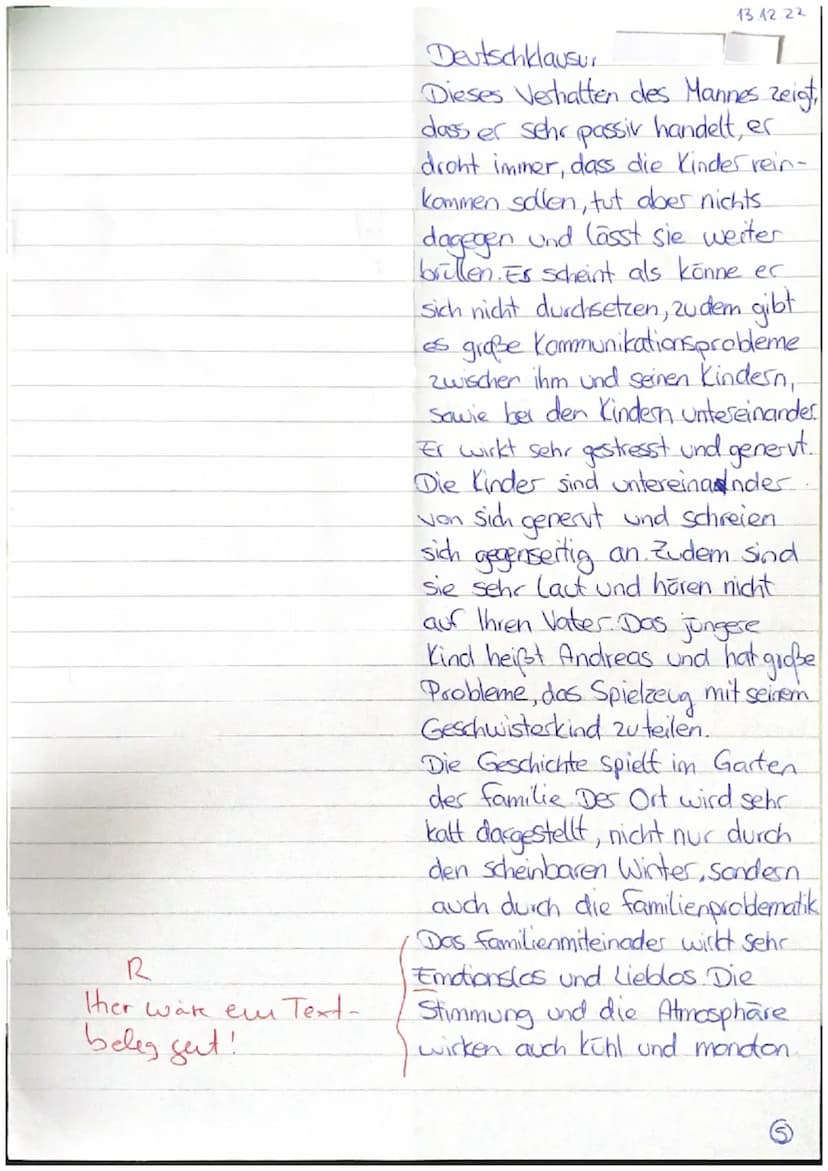 13.12.22
Deutschklausur
Dieses Verhalten des Mannes zeigt,
dass er sehr passiv handelt, er
droht immer, dass die Kinder rein-
kommen sollen, tut aber nichts
dagegen und lässt sie weiter
brüllen. Es scheint als könne er
sich nicht durchsetzen, zudem gibt
es große Kommunikationsprobleme
zwischen ihm und seinen Kindern,
sowie bei den Kindern untereinander.
Er wirkt sehr gestresst und genervt.
Die Kinder sind untereinander
von sich genervt und schreien
sich gegenseitig an. Zudem sind
sie sehr laut und hören nicht
auf Ihren Vater. Das jüngese
Kind heißt Andreas und hat große
Probleme, das Spielzeug mit seinem
Geschwisterkind zu teilen.
Die Geschichte spielt im Garten
der Familie. Der Ort wird sehr
kalt dargestellt, nicht nur durch
den scheinbaren Winter, sondern
auch durch die Familienproblematik
Das Familienmiteinader wirkt sehr
Emotionslos und Lieblos. Die
Stimmung und die Atmosphäre
wirken auch kühl und monoton.
R
Hier wäre ein Text-
beleg gut!
5